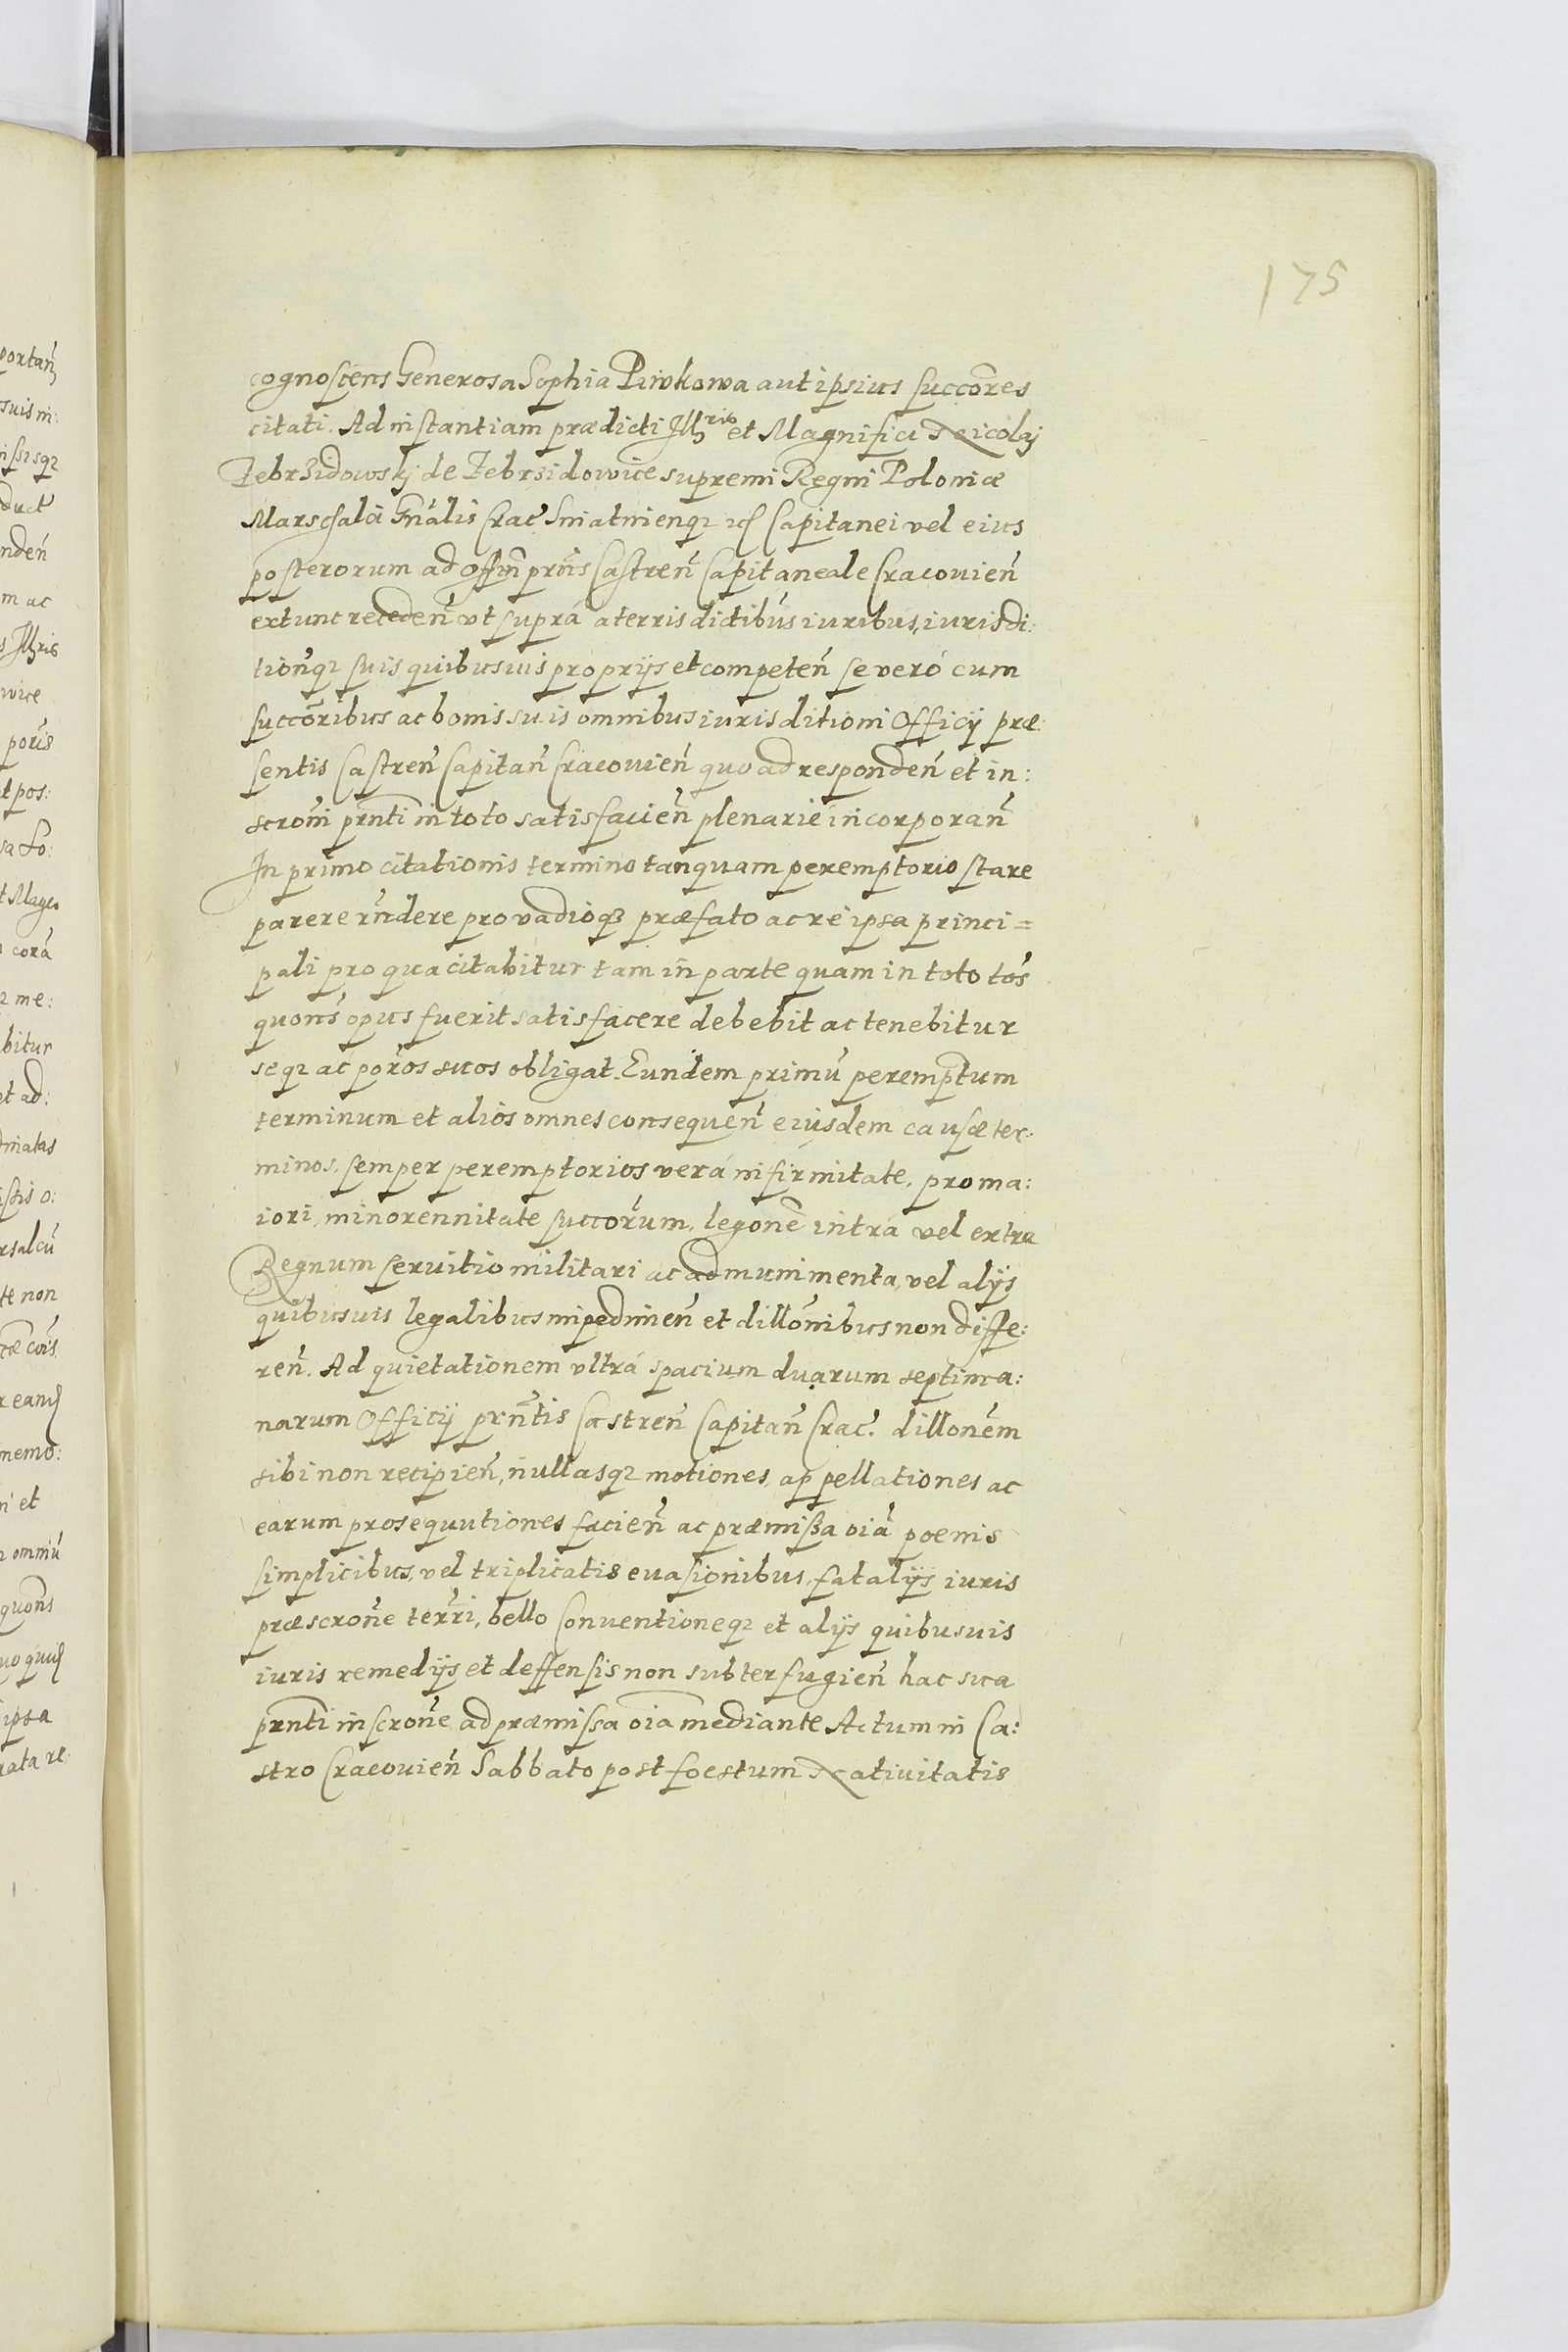 175
cognoscens Generosa Sophia Piwkowa aut ipsius succõres
citati. Ad instantiam prædicti Illris et Magnifici Nicolaj
Zebrzidowskj de Zebrzidowice supremi Regni Poloniæ
Marschalci Gnãlis Crac̃ Sniatnienqȝ Capitanei vel eius
posterorum ad offim prñs Castreñ Capitaneale Cracouieñ
extunc recedeñ vt suprá a terris dictibus iuribus, iurisdi:
tionqȝ suis quibusuis proprijs et competeñ se veró cum
succõribus ac bonis suis omnibus iurisditioni Officij præ:
sentis Castreñ Capitañ Cracouieñ quo ad respondeñ et in:
scrõni prñti in toto satisfacieñ plenarie incorporañ
In primo citationis termino tanquam peremptorio stare
parere rñdere pro vadioqȝ præfato ac re ipsa princi=
pali pro qua citabitur tam in parte quam in toto tos̃
quotis̃ opus fuerit satisfacere debebit ac tenebitur
seqȝ ac põros suos obligat. Eundem primũ peremptum
terminum et alios omnes consequeñ eiusdem causæ ter:
minos. semper peremptorios verá infirmitate, pro ma:
iori, minorennitate succõrum, legõne intra vel extra
Regnum seruitio militari ac ad munimenta, vel alijs
quibusuis legalibus impedimeñ et dillõnibus non diffe:
reñ. Ad quietationem vltrá spacium duarum septima:
narum Officij prñtis Castreñ Capitañ Crac̃. dillonẽm
sibi non recipieñ, nullasqȝ motiones, appellationes ac
earum prosequutiones facieñ ac præmissa oiã poenis
simplicibus, vel triplicatis euasionibus, fatalijs iuris
præscrõne terri, bello Conuentioneqȝ et alijs quibusuis
iuris remedijs et deffensis non subterfugieñ hac sua
prñti inscrõne ad præmissa oiã mediante Actum in Ca:
stro Cracouieñ Sabbato post foestum Natiuitatis